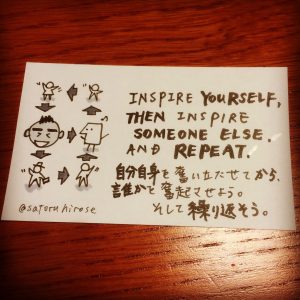 INSPIRE YOURSELF,
THEN INSPIRE
SOMEONE ELSE.
AND REPEAT.
自分自身を奮い立たせてから、
誰かを奮起させよう。
そして繰り返そう。
@satoruhirose